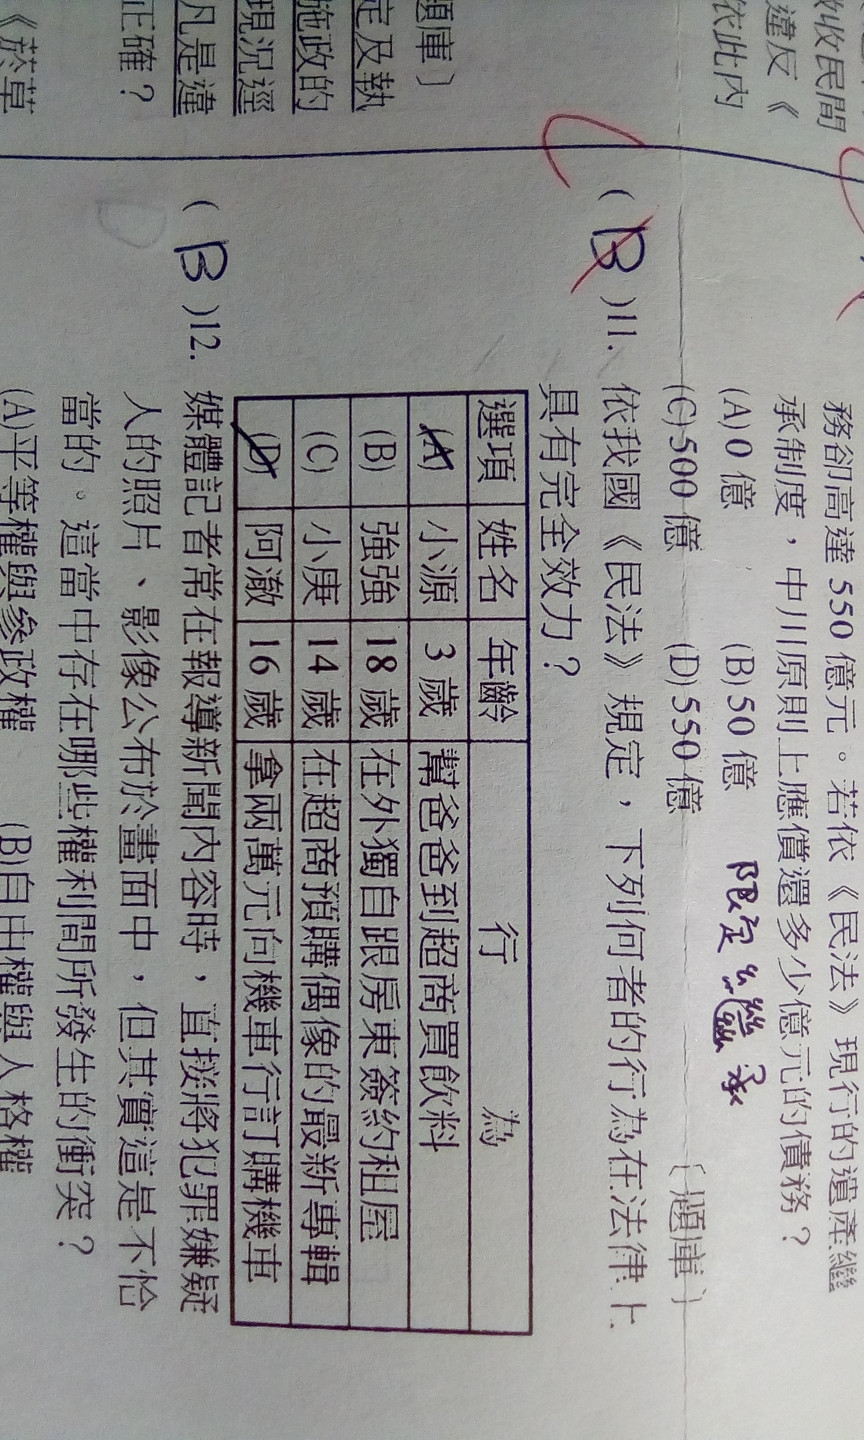 務卻高達 550 億元。若依《民法》現行的遺產繼
承制度，中川原則上應償還多少億元的債務？
(A)0 億 (B)50 億
(C)500 億 (D)550 億 〔題庫〕
限定 繼承
( B )11. 依我國《民法》規定，下列何者的行為在法律上
具有完全效力？
選項 姓名 年齡 行 為
(A) 小源 3 歲 幫爸爸到超商買飲料
(B) 強強 18 歲 在外獨自跟房東簽約租屋
(C) 小庚 14 歲 在超商預購偶像的最新專輯
(D) 阿澈 16 歲 拿兩萬元向機車行訂購機車
( B )12. 媒體記者常在報導新聞內容時，直接將犯罪嫌疑
人的照片、影像公布於畫面中，但其實這是不恰
當的。這當中存在哪些權利間所發生的衝突？
(A)平等權與參政權 (B)自由權與人格權
收民間
違反《
依此內
題庫〕
定及執
施政的
現況逕
凡是違
正確？
《菸草